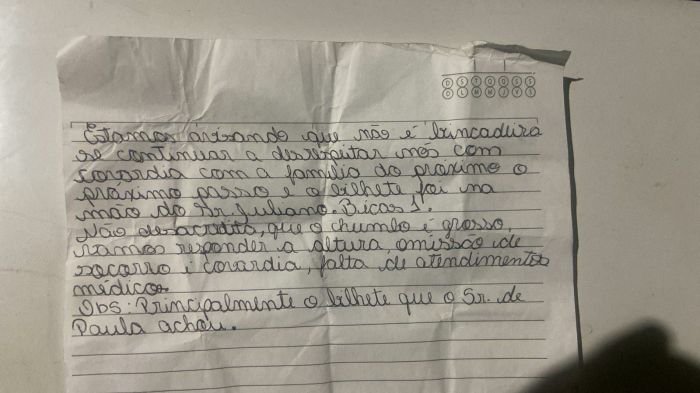 D S T Q Q S S
D L M M J V S
Estamos avisando que não é brincadeira
se continuar a desrespeitar nós com
covardia com a familia do proximo o
próximo passo e o bilhete foi na
mão do Sr. Juliano. Bicas 1.
Não desacredita, que o chumbo é grosso,
vamos responder a altura, omissão de
socorro é covardia, falta de atendimentos
médicos.
Obs: Principalmente o bilhete que o Sr. de
Paula achou.